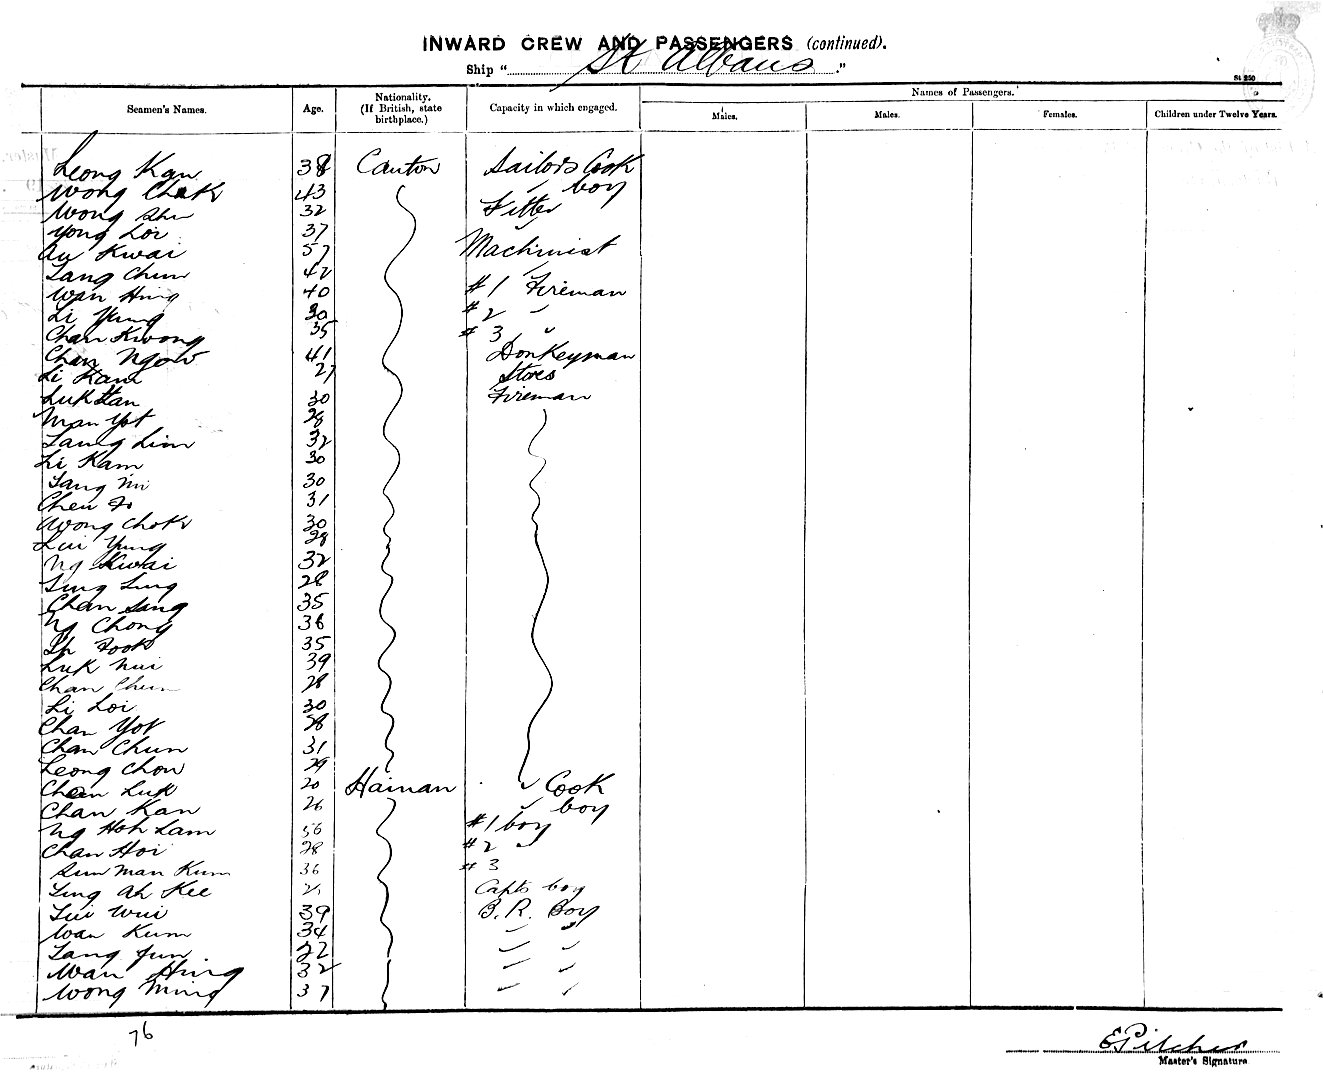 INWARD CREW AND PASSENGERS (continued).
Ship "St Albans."
St 250
Seamen's Names. Age. Nationality. (If British, state birthplace.) Capacity in which engaged. Names of Passengers.
Males. Males. Females. Children under Twelve Years.
Leong Kan 38 Canton Sailors Cook
Wong Chak 43 " boy
Wong Shu 32 Fitter
Yong Loi 37 "
Au Kwai 57 Machinist
Tang Chun 42 "
Wan Hing 40 #1 Fireman
Li Yung 30 #2 "
Chan Kwong 35 #3 "
Chan Ngow 41 Donkeyman
Li Kam 27 Stores
Luk Han 30 Fireman
Man Yot 28
Tang Lim 32
Li Kam 30
Tang Mi 30
Chen Fo 31
Wong Chok 30
Lui Yung 28
Ng Kwai 32
Ling Ling 28
Chan Sang 35
Ng Chong 38
Ip Fook 35
Luk Nui 39
Chan Chun 28
Li Loi 30
Chan Yot 28
Chan Chun 31
Leong Chow 29
Chan Luk 20 Hainan " Cook
Chan Kan 26 " boy
Ng Hoh Lam 56 #1 boy
Chan Hoi 28 #2 "
Sun Man Kum 36 #3
Ling Ah Kee Capts boy
Lui Wui 39 B.R. Boy
Wan Kum 34 " "
Tang Jun 22 " "
Wan Hing 32 " "
Wong Ming 37 " "
76
E Pilcher
Master's Signature